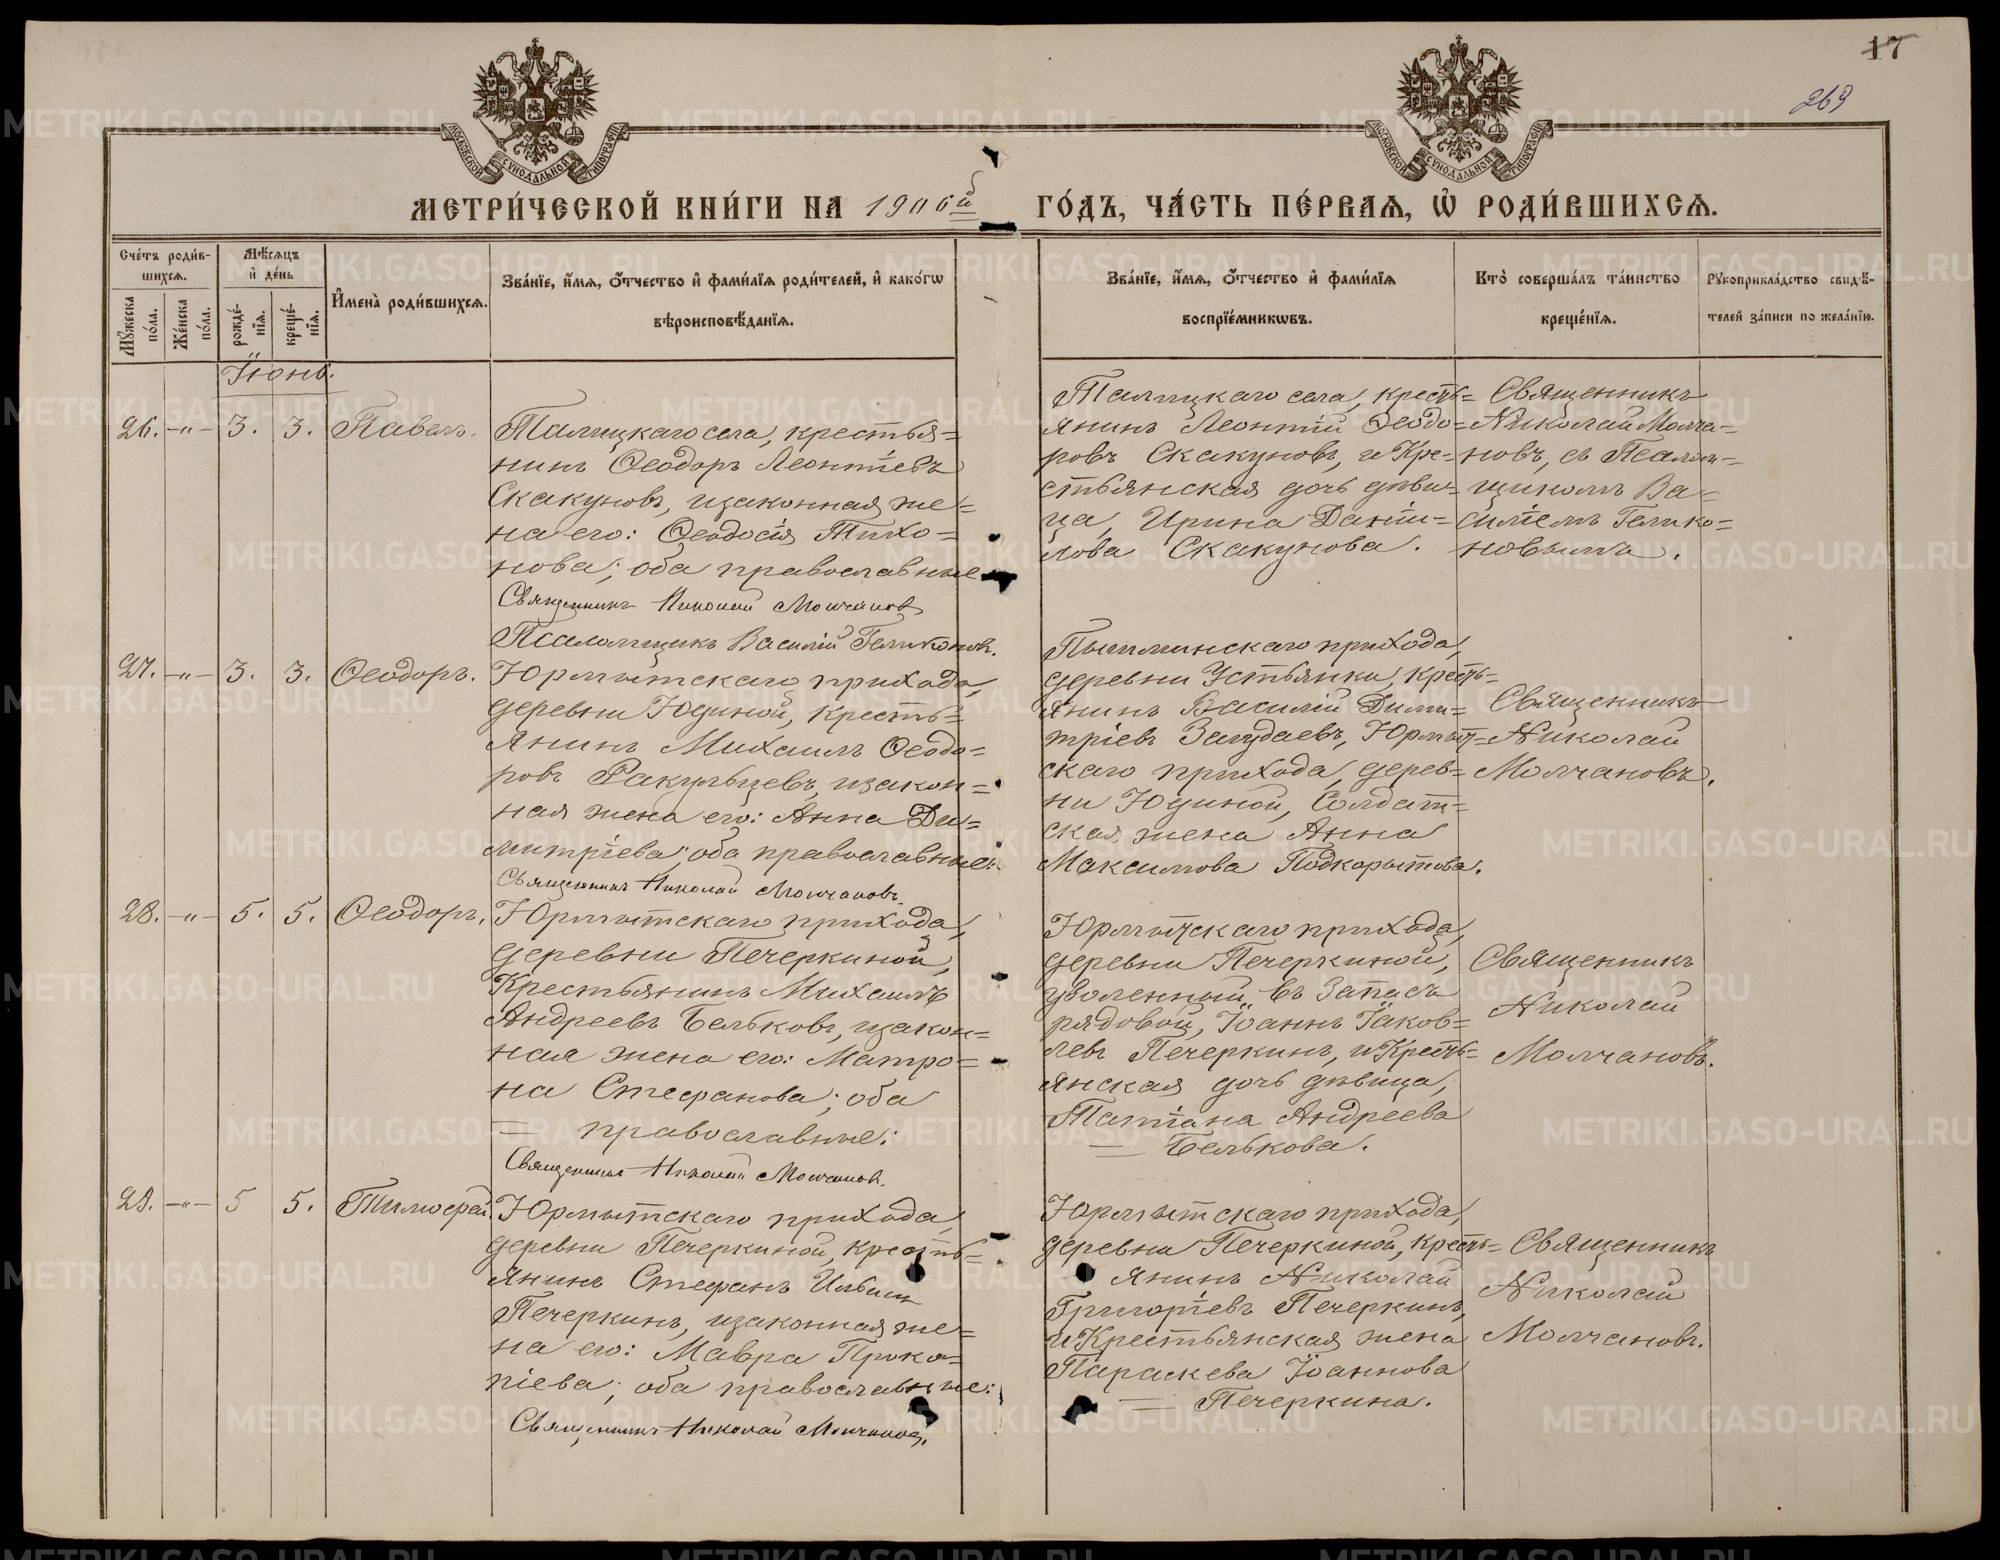 17
269
МОСКОВСКОЙ СѴНОДАЛЬНОЙ ТИПОГРАФІИ
МОСКОВСКОЙ СѴНОДАЛЬНОЙ ТИПОГРАФІИ
МЕТРИ́ЧЕСКОЙ КНИ́ГИ НА 1906й ГО́ДЪ, ЧА́СТЬ ПЕ́РВАѦ, Ѡ҆ РОДИ́ВШИХСѦ.
Сче́тъ роди́в-
шихсѧ.
Мѣ́сѧцъ
и҆ де́нь
Мꙋ́жеска по́ла.
Же́нска по́ла.
рожде́-
нїѧ.
креще́-
нїѧ.
И҆мена̀ роди́вшихсѧ.
Зва́нїе, и҆́мѧ, ѻ҆́тчество и҆ фами́лїѧ роди́телей, и҆ како́гѡ
вѣроисповѣ́данїѧ.
Зва́нїе, и҆́мѧ, ѻ҆́тчество и҆ фами́лїѧ
воспрїе́мникѡвъ.
Кто̀ соверша́лъ та́инство
креще́нїѧ.
Рꙋкоприкла́дство свидѣ́-
телей за́писи по жела́нїю.
Іюнь.
26. -"- 3. 3. Павелъ.
Талицкаго села, крестья=
нинъ Ѳеодоръ Леонтіевъ
Скакуновъ, и законная же=
на его: Ѳеодосія Тихо=
нова; оба православные
Священникъ Николай Молчановъ
Псаломщикъ Василій Геликоновъ.
Талицкаго села, кресть=
янинъ Леонтій Ѳеодо=
ровъ Скакуновъ, и Кре=
стьянская дочь дѣви=
ца, Ирина Даніи=
лова Скакунова.
Священникъ
Николай Молча=
новъ, съ Псалом=
щикомъ Ва=
силіемъ Гелико=
новымъ.
27. -"- 3. 3. Ѳеодоръ.
Юрмытскаго прихода,
деревни Юдиной, кресть=
янинъ Михаилъ Ѳеодо=
ровъ Ракульцевъ, и закон=
ная жена его: Анна Ди=
митріева; оба православные.
Священникъ Николай Молчановъ.
Пышминскаго прихода,
деревни Устьянки, кресть=
янинъ Василій Дими=
тріевъ Юрмыт=
скаго прихода, дерев=
ни Юдиной, Солдат=
ская жена Анна
Максимова Подкорытова.
Священникъ
Николай
Молчановъ.
28. -"- 5. 5. Ѳеодоръ.
Юрмытскаго прихода,
деревни Печеркиной,
Крестьянинъ Михаилъ
Андреевъ Бельковъ, и закон=
ная жена его: Матро=
на Стефанова; оба
= православные:
Священникъ Николай Молчановъ.
Юрмытскаго прихода,
деревни Печеркиной,
уволенный въ Запасъ
рядовой, Іоаннъ Іаков=
левъ Печеркинъ, и Кресть=
янская дочь дѣвица,
Татіана Андреева
= Белькова.
Священникъ
Николай
Молчановъ.
29. -"- 5 5. Тимофей.
Юрмытскаго прихода,
деревни Печеркиной, кресть=
янинъ Стефанъ Ильинъ
Печеркинъ, и законная же=
на его: Мавра Проко=
піева; оба православные:
Священникъ Николай Молчановъ.
Юрмытскаго прихода,
деревни Печеркиной, кресть=
янинъ Николай
Григоріевъ Печеркинъ,
и Крестьянская жена
Параскева Іоаннова
= Печеркина.
Священникъ
Николай
Молчановъ.
METRIKI.GASO-URAL.RU